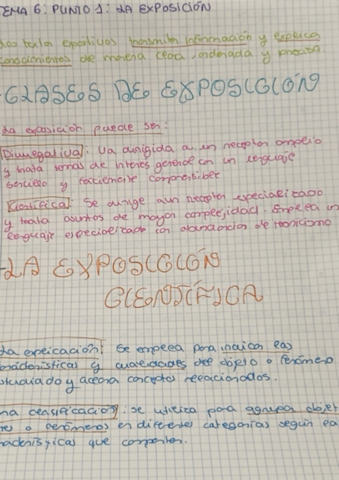 EMA 6: PUNTO 1: LA EXPOSICIÓN
Los textos expositivos transmiten información y explica
conocimientos de manera clara, ordenada y precisa.
CLASES DE EXPOSICIÓN
La exposición puede ser:
Divulgativa: Va dirigida a un receptor amplio
y trata temas de interés general con un lenguaje
sencillo y facilmente comprensible.
Científica: Se dirige a un receptor especializado
y trata asuntos de mayor complejidad. Emplea un
lenguaje especializado con abundancia de tecnicismo
LA EXPOSICIÓN
CIENTÍFICA
La explicación: Se emplea para indicar las
características y cualidades del objeto o fenómeno
estudiado y aclara conceptos relacionados.
na clasificación: se utiliza para agrupa objet
res o fenómenos en diferentes categorías según la
racterísticas que comparten.